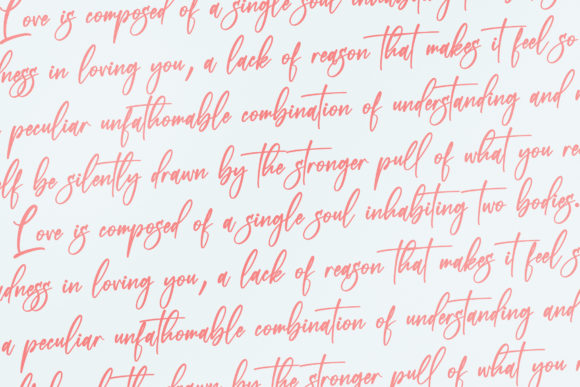 Love is composed of a single soul inhabiting t
dness in loving you, a lack of reason that makes it feel so
peculiar unfathomable combination of understanding and
elf be silently drawn by the stronger pull of what you re
Love is composed of a single soul inhabiting two bodies.
adness in loving you, a lack of reason that makes it feel s
a peculiar unfathomable combination of understanding and
be silently drawn by the stronger pull of what you